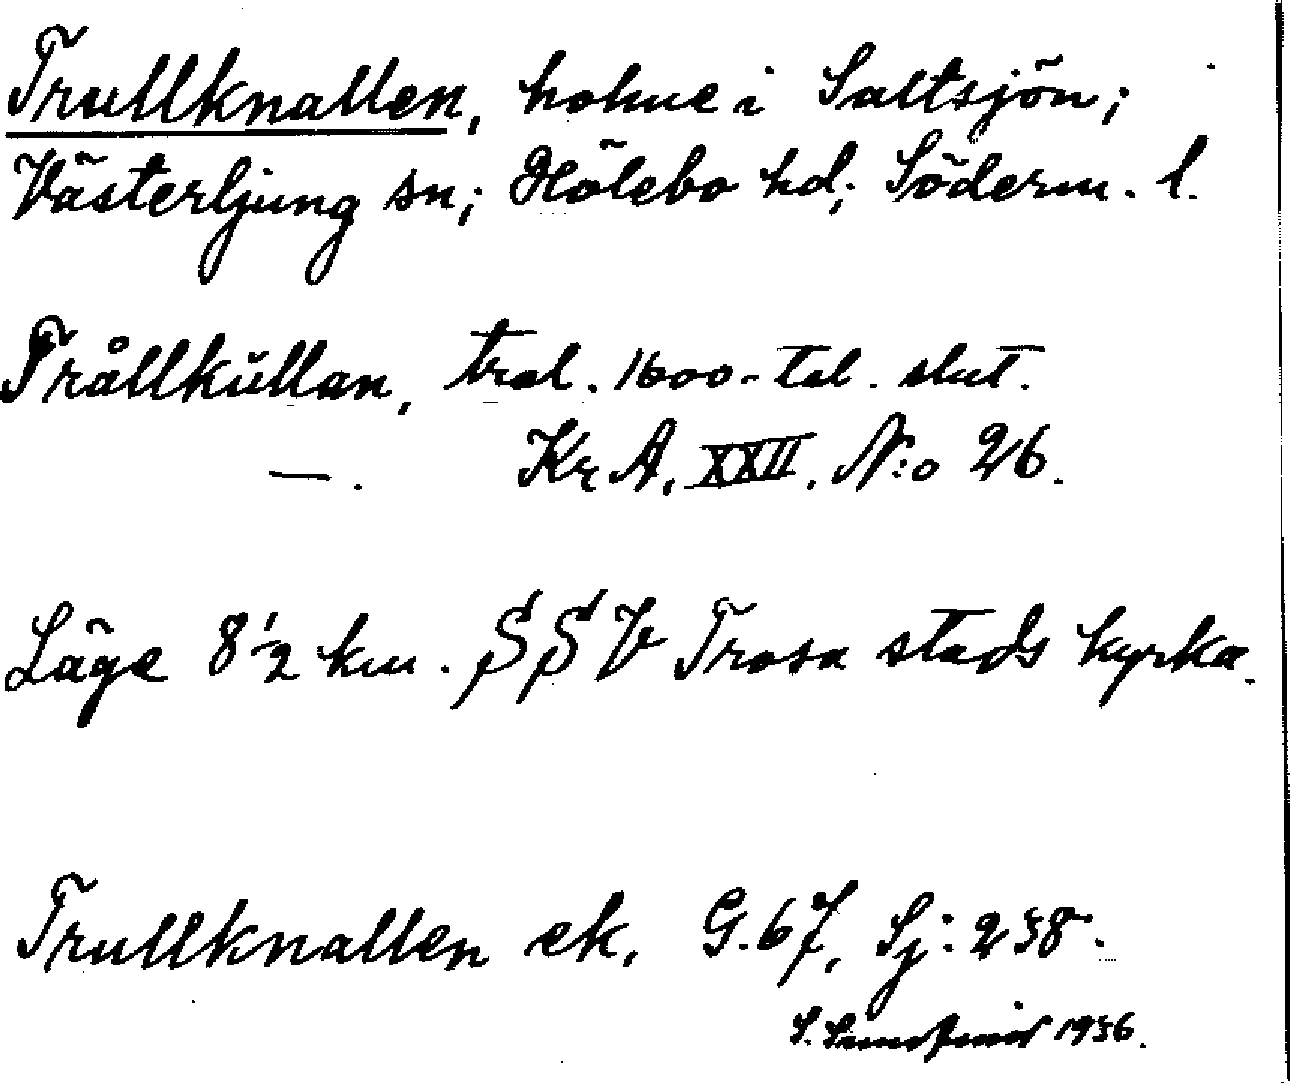 Trullknallen, holme i Saltsjön;
Västerljung sn; Hölebo hd; Söderm. l.
Trållkullan, tral. 1600-tal. slut.
—. Kr A, XXII. N:o 26.
Läge 8 1/2 km. SSV Trosa stads kyrka.
Trullknallen ek, G.67, Sj: 238.
S. 1936.